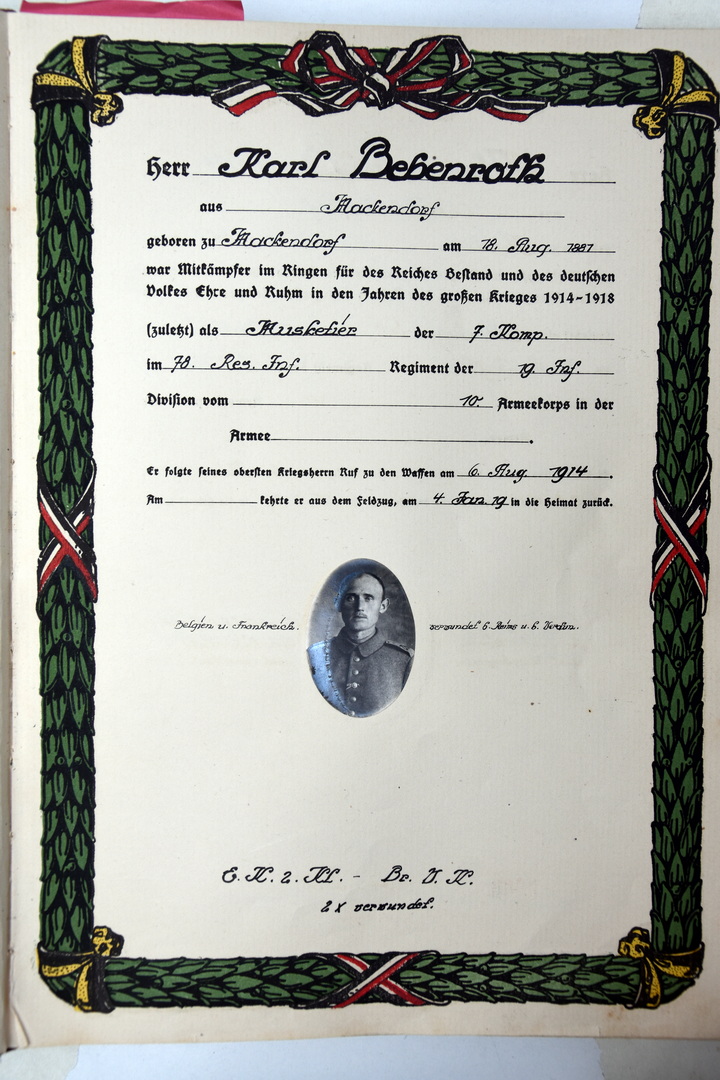 Herr Karl Bebenroth
aus Mackendorf
geboren zu Mackendorf am 18. Aug. 1887
war Mitkämpfer im Ringen für des Reiches Bestand und des deutschen
Volkes Ehre und Ruhm in den Jahren des großen Krieges 1914-1918
(zuletzt) als Musketier der 7. Komp.
im 78. Res. Inf. Regiment der 19. Inf.
Division vom 10. Armeekorps in der
Armee .
Er folgte seines obersten Kriegsherrn Ruf zu den Waffen am 6. Aug. 1914.
Am kehrte er aus dem Feldzug, am 4. Jan. 19 in die Heimat zurück.
Belgien u. Frankreich. verwundet b. Reims u. b. Verdun.
E. K. 2. Kl. - Br. V. K.
2 x verwundet.